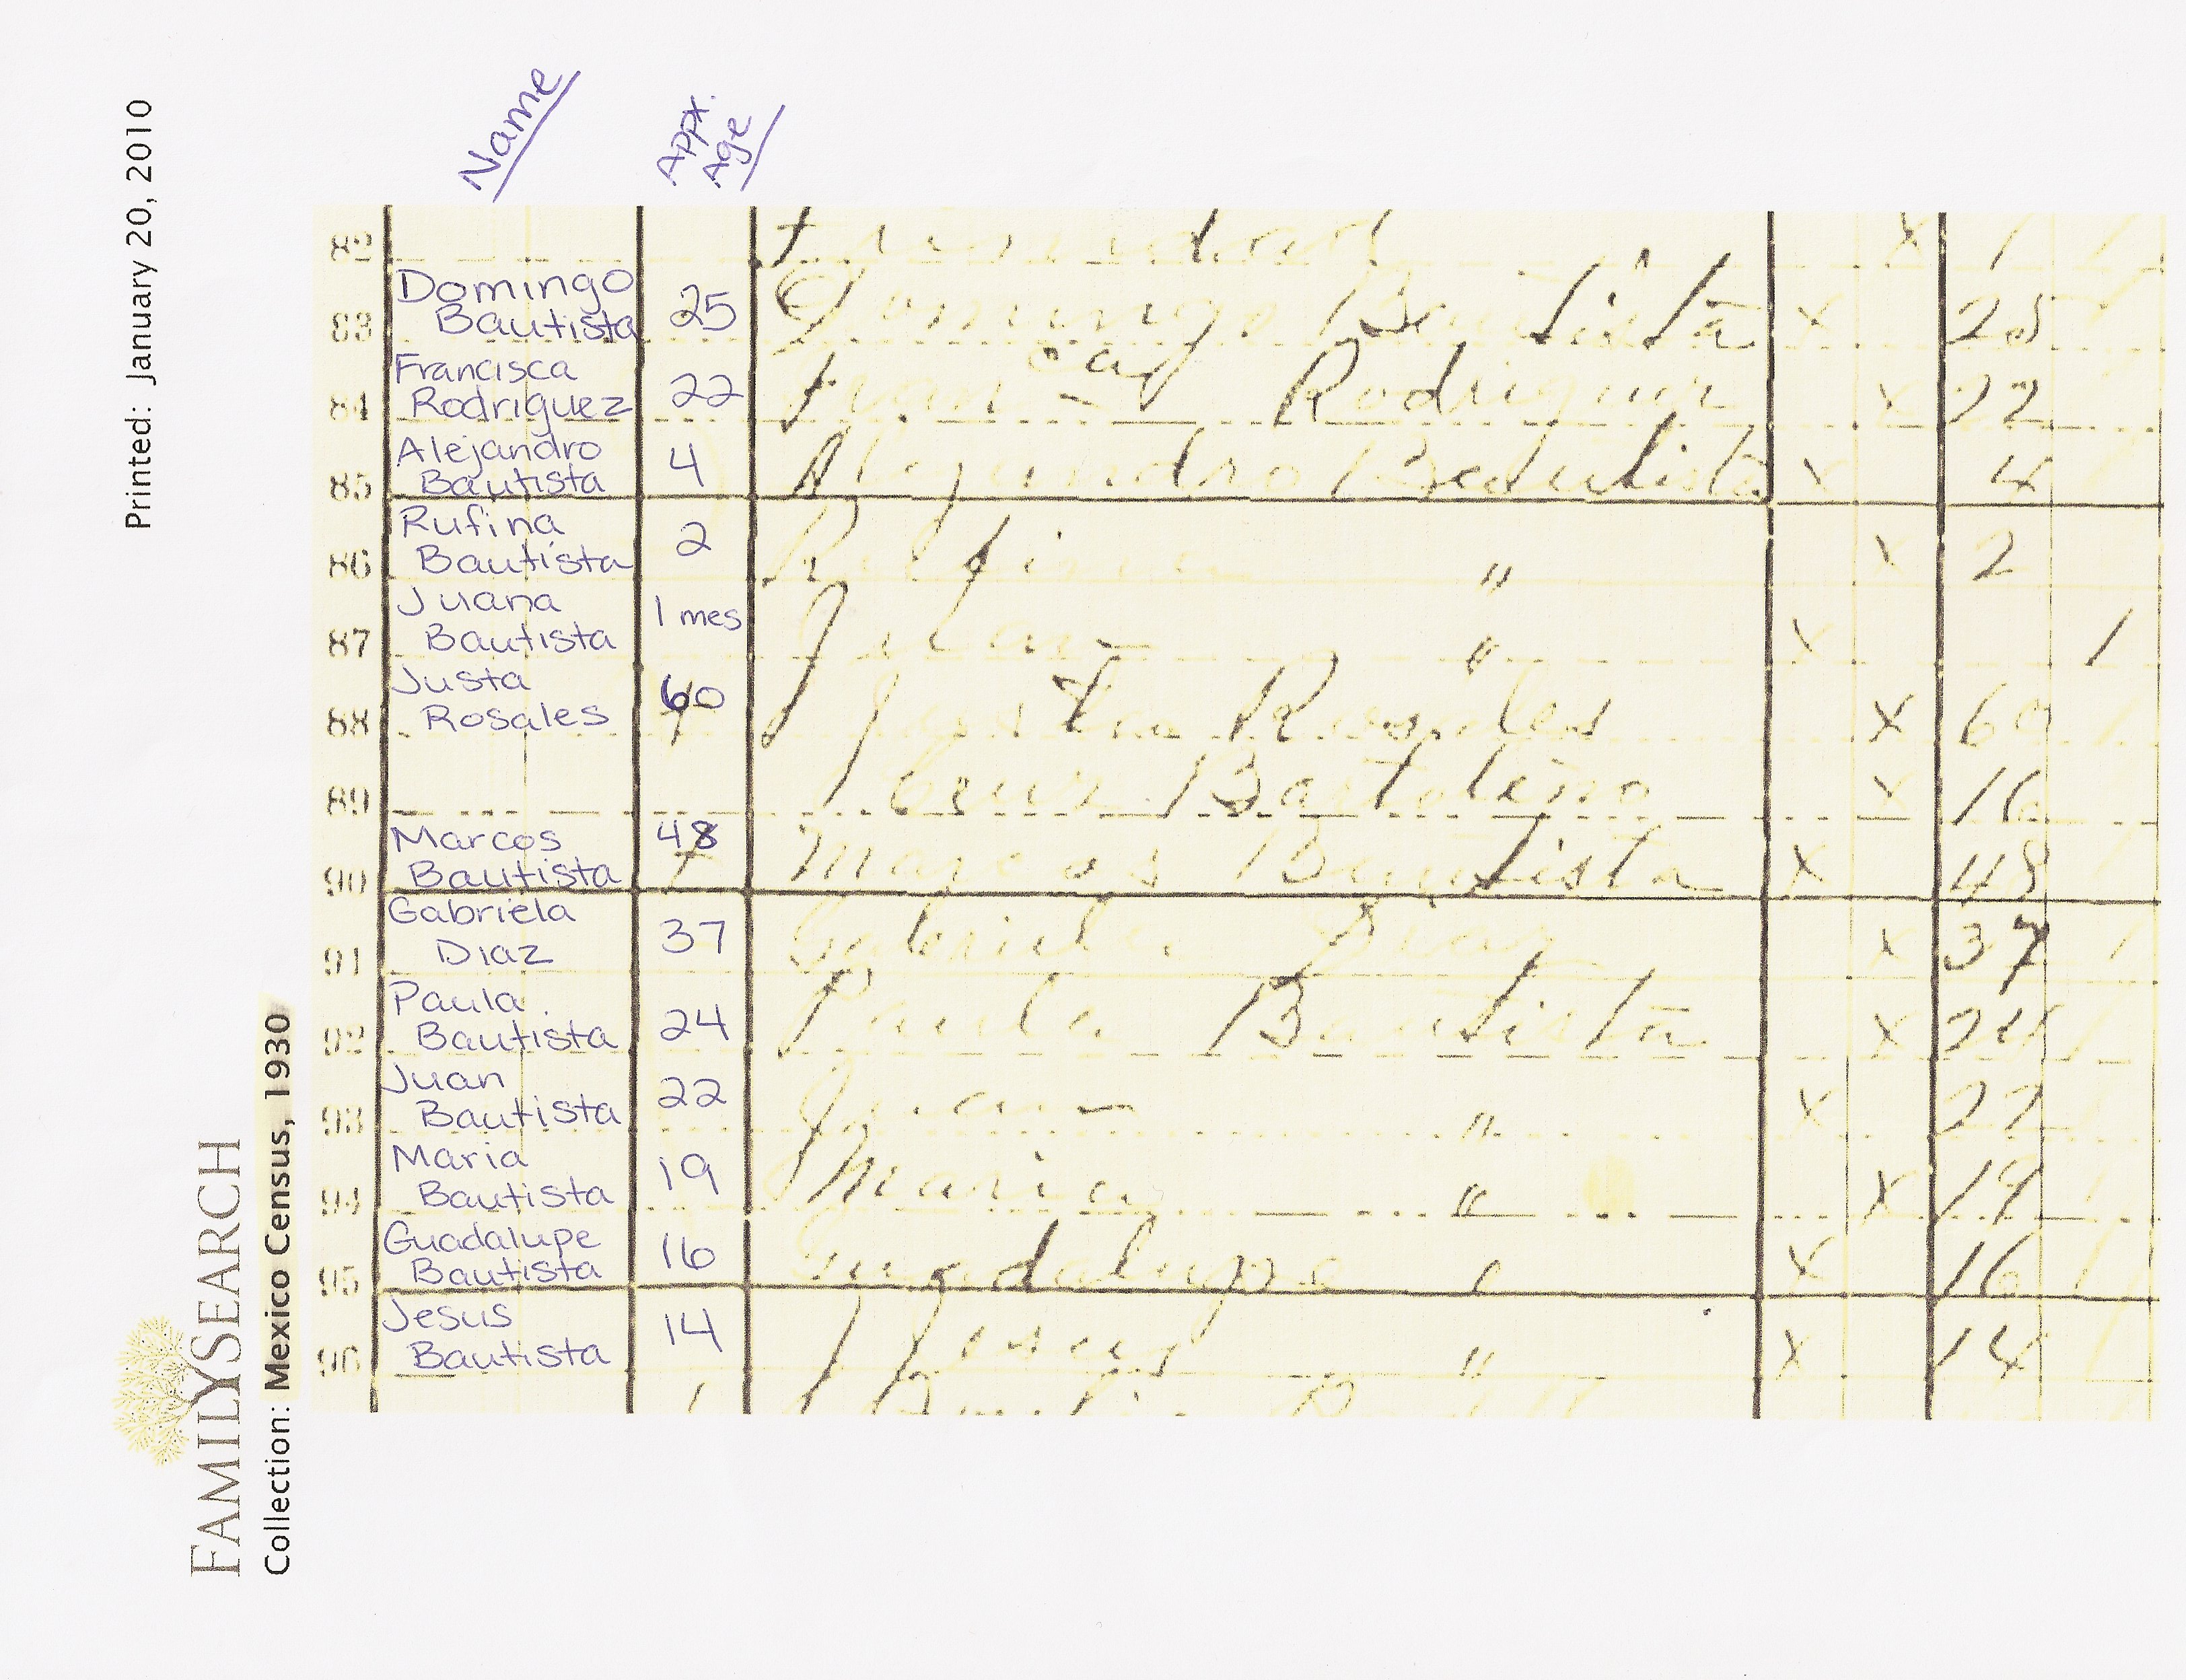 Printed: January 20, 2010
FAMILYSEARCH
Collection: Mexico Census, 1930
Name
Appx.
Age
82
Domingo
83 Bautista 25 Domingo Bautista x 25
Francisca
84 Rodriguez 22 Rodriguez x 22
Alejandro
85 Bautista 4 Alejandro Bautista x 4
Rufina
86 Bautista 2 Rufina " x 2
Juana
87 Bautista 1 mes Juan " x 1
Justa
88 Rosales 60 Justa Rosales x 60
89 x 16
Marcos
90 Bautista 48 Marcos Bautista x 48
Gabriela
91 Diaz 37 Gabriela Diaz x 37
Paula
92 Bautista 24 Paula Bautista x 24
Juan
93 Bautista 22 Juan " x 22
Maria
94 Bautista 19 Maria " x 19
Guadalupe
95 Bautista 16 Guadalupe x 16
Jesus
96 Bautista 14 Jesus " x 14